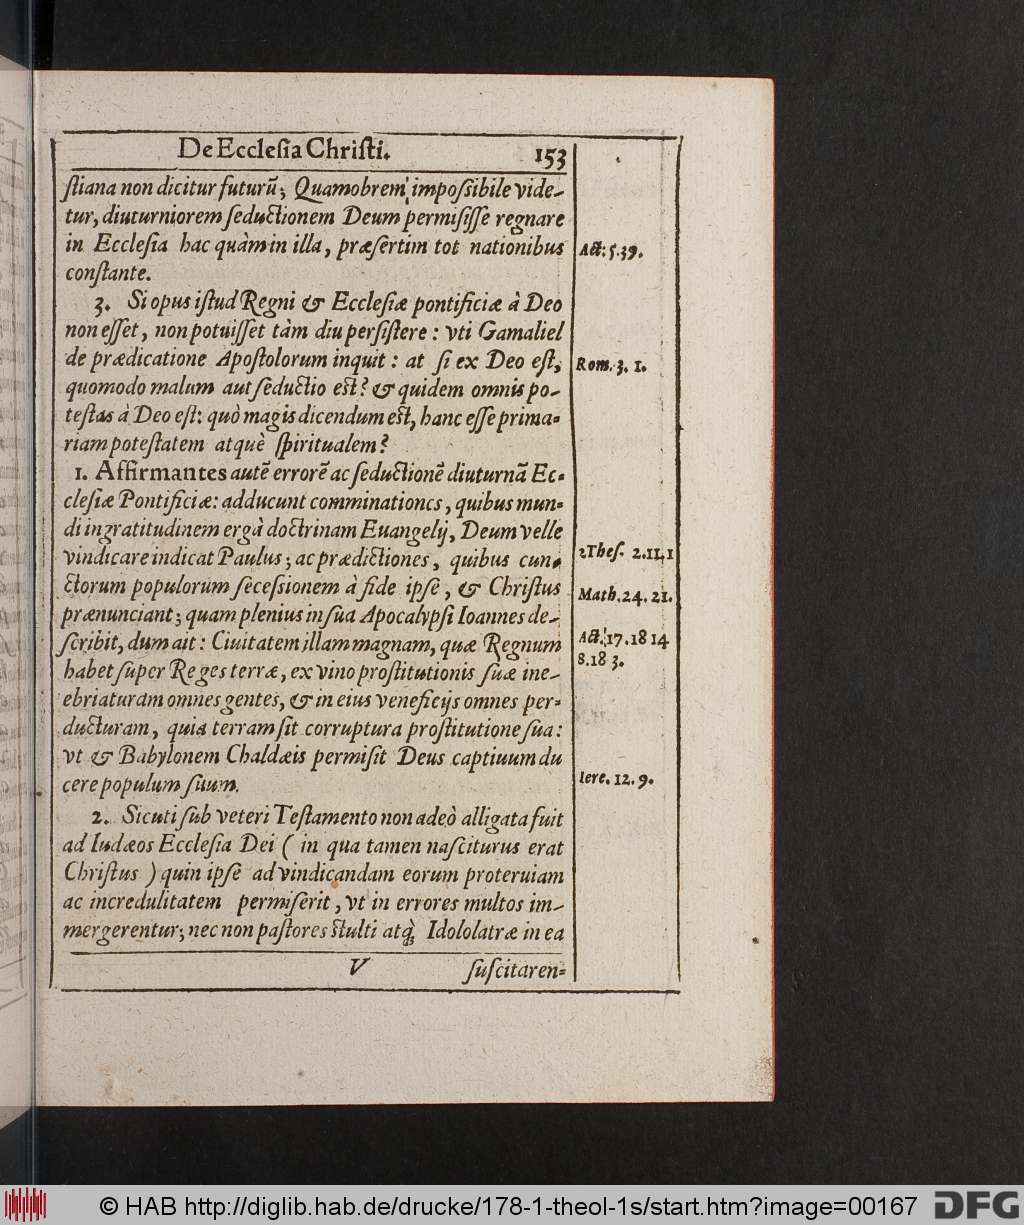 De Ecclesia Christi. 153
ſtiana non dicitur futurũ; Quamobrem impoſſibile vide-
tur, diuturniorem ſeductionem Deum permiſiſſe regnare
in Eccleſia hac quàm in illa, præſertim tot nationibus
conſtante.
Act: 5. 39.
3. Si opus iſtud Regni & Eccleſiæ pontificiæ à Deo
non eſſet, non potuiſſet tàm diu perſiſtere: vti Gamaliel
de prædicatione Apoſtolorum inquit: at ſi ex Deo eſt,
quomodo malum aut ſeductio eſt? & quidem omnis po-
teſtas à Deo eſt: quò magis dicendum eſt, hanc eſſe prima-
riam poteſtatem atquè ſpiritualem?
Rom. 3. 1.
1. Affirmantes autẽ errorẽ ac ſeductionẽ diuturnã Ec-
cleſiæ Pontificiæ: adducunt comminationes, quibus mun-
di ingratitudinem ergà doctrinam Euangelij, Deum velle
vindicare indicat Paulus; ac prædictiones, quibus cun-
ctorum populorum ſeceſſionem à fide ipſe, & Chriſtus
prænunciant; quam plenius in ſua Apocalypſi Ioannes de-
ſcribit, dum ait: Ciuitatem illam magnam, quæ Regnum
habet ſuper Reges terræ, ex vino proſtitutionis ſuæ ine-
ebriaturam omnes gentes, & in eius veneficijs omnes per-
ducturam, quia terram ſit corruptura proſtitutione ſua:
vt & Babylonem Chaldæis permiſit Deus captiuum du
cere populum ſuum.
2Theſ. 2. 11,1
Math. 24. 21.
Act. 17. 18 14
8. 18 3.
Iere. 12. 9.
2. Sicuti ſub veteri Teſtamento non adeò alligata fuit
ad Iudæos Eccleſia Dei ( in qua tamen naſciturus erat
Chriſtus ) quin ipſe ad vindicandam eorum proteruiam
ac incredulitatem permiſerit, vt in errores multos im-
mergerentur; nec non paſtores ſtulti atq; Idololatræ in ea
V ſuſcitaren-
© HAB http://diglib.hab.de/drucke/178-1-theol-1s/start.htm?image=00167
DFG